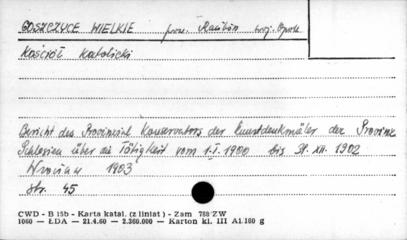 GOSZCZYCE WIELKIE pow. Racibórz woj. Opole
Kościół Katolicki
Bericht des Provinzial Konservators der Kunstdenkmäler der Provinz
Schlesien über die Tätigkeit vom 1.I.1900 bis 31.XII.1902
Wrocław 1903
str. 45
CWD - B 15b - Karta katal. (z liniat) - Zam 788/ZW
1060 — ŁDA — 21.4.60 — 2.360.000 — Karton kl. III A1.160 g